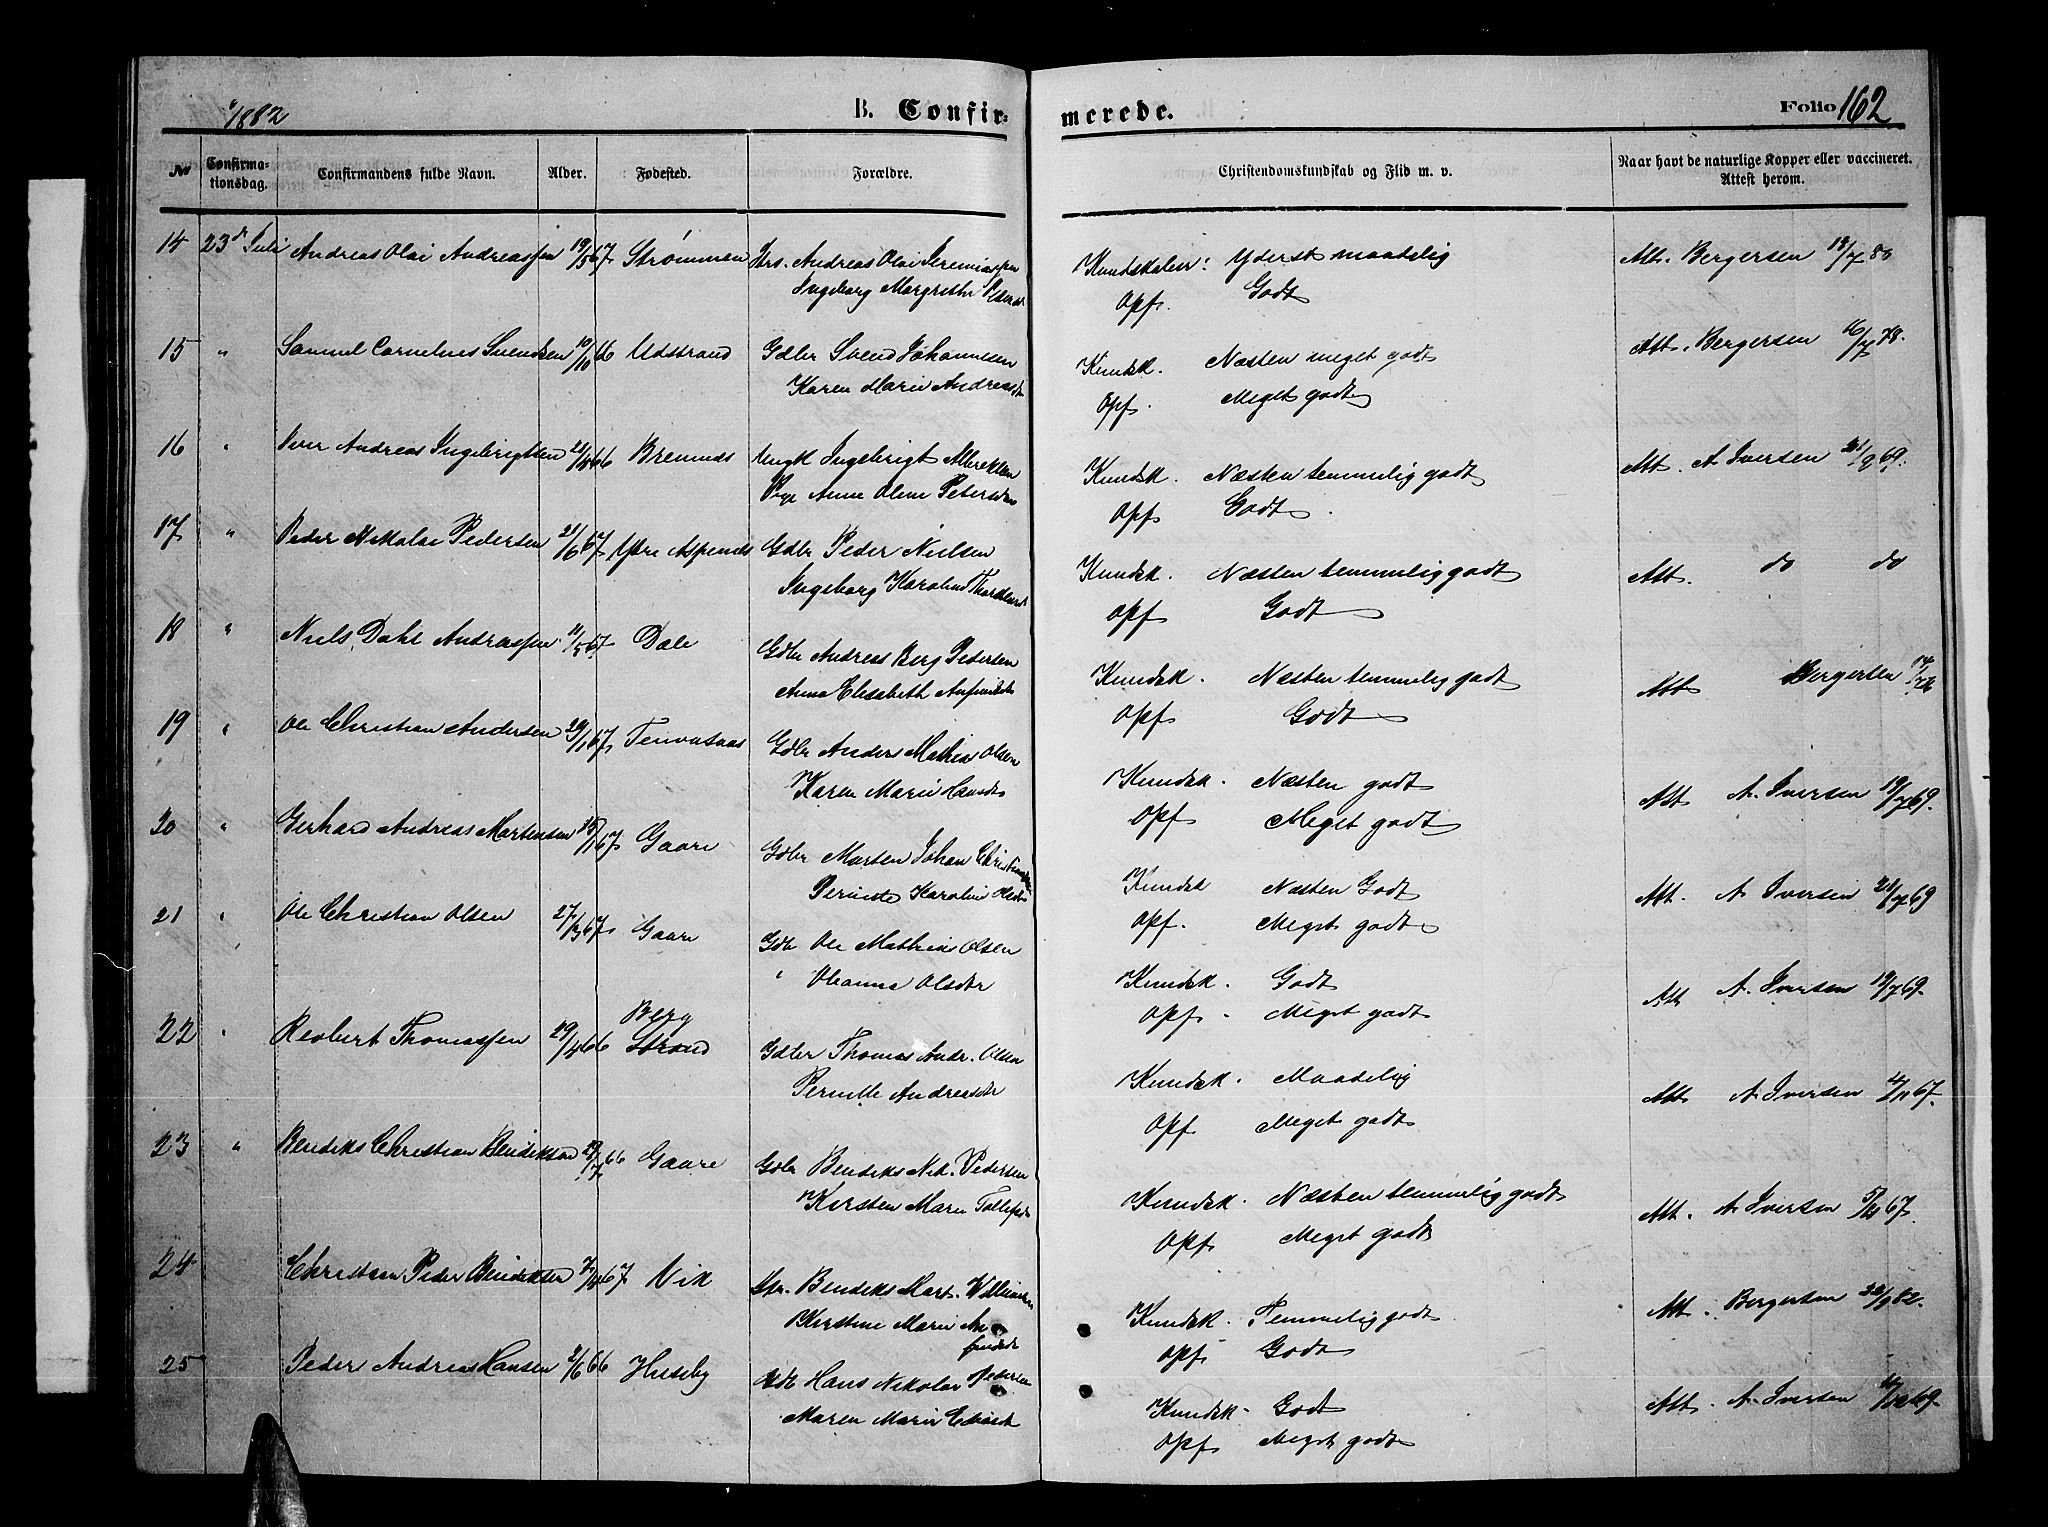 1882
B. Confirmerede.
Folio 162
No
Confirmationsdag.
Confirmandens fulde Navn.
Alder.
Fødested.
Forældre.
Christendomskundskab og Flid m. v.
Naar havt de naturlige Kopper eller vaccineret. Attest herom.
14 23de Juli Andreas Olai Andreassen 19/5 67 Strømmen Andreas Olai Jeremiassen Kundskaber: Yderst maadelig Att. Bergersen 18/7 80
Ingeborg Margrethe Opf. Godt
15 " Samuel Cornelius Svendsen 10/10 66 Udstrand Gdbr Svend Johannesen Kundsk. Næsten meget godt Att. Bergersen 16/7 78.
Karen Marie Andreasdt Opf. Meget godt
16 " Iver Andreas Ingebrigtsen 21/4 66 Bremnes Ungk Ingebrigt Albrektsen Kundsk. Næsten temmelig godt Att. A. Iversen 21/9 69.
Pige Anne Oline Petersdtr Opf Godt
17 " Peder Nikolai Pedersen 21/6 67 Ytre Aspenes Gdbr Peder Nielsen Kundsk. Næsten temmelig godt Att. do do
Ingeborg Karoline Opf Godt
18 " Niels Dahl Andreassen 11/5 67 Dale Gdbr Andreas Berg Pedersen Kundsk. Næsten temmelig godt Att Bergersen
Anna Elisabeth Opf Godt
19 " Ole Christian Andersen 29/1 67 Gdbr Anders Mathias Olsen Kundsk. Næsten godt Att A. Iversen 19/7 69.
Karen Marie Hansdtr Opf Meget godt
20 " Gerhard Andreas Mortensen 25/1 67 Gaare Gdbr Morten Johan Kundsk Næsten Godt Att. A. Iversen 21/7 69
Karoline Olsdtr Opf. Meget godt
21 " Ole Christian Olsen 27/3 67 Gaare Gdb Ole Mathias Olsen Kundsk. Godt Att A. Iversen 19/7 69.
" Olianna Olsdtr Opf. Meget godt
22 " Reobert Thomassen 29/4 66 Berg Strand Gdbr Thomas Andr. Olsen Kundsk. Maadelig Att A. Iversen
Pernille Andreasdtr Opf Meget godt
23 " Bendiks Christian Bendiksen 29/7 66 Gaare Gdbr Bendiks Nik. Pedersen Kundsk. Næsten temmelig godt Att. A. Iversen
Kirsten Marie Tollefsdtr Opf. Meget godt
24 Christian Peder Bendiksen Vik Bendiks Mart. Kundsk. Temmelig godt Att. Bergersen 22/9 82.
Kirstine Marie Opf Godt
25 Peder Andreas Hansen 2/6 66 Huseby Gdb Hans Nikolai Pedersen Kundsk. Godt Att. A. Iversen
Maren Marie Opf Meget godt